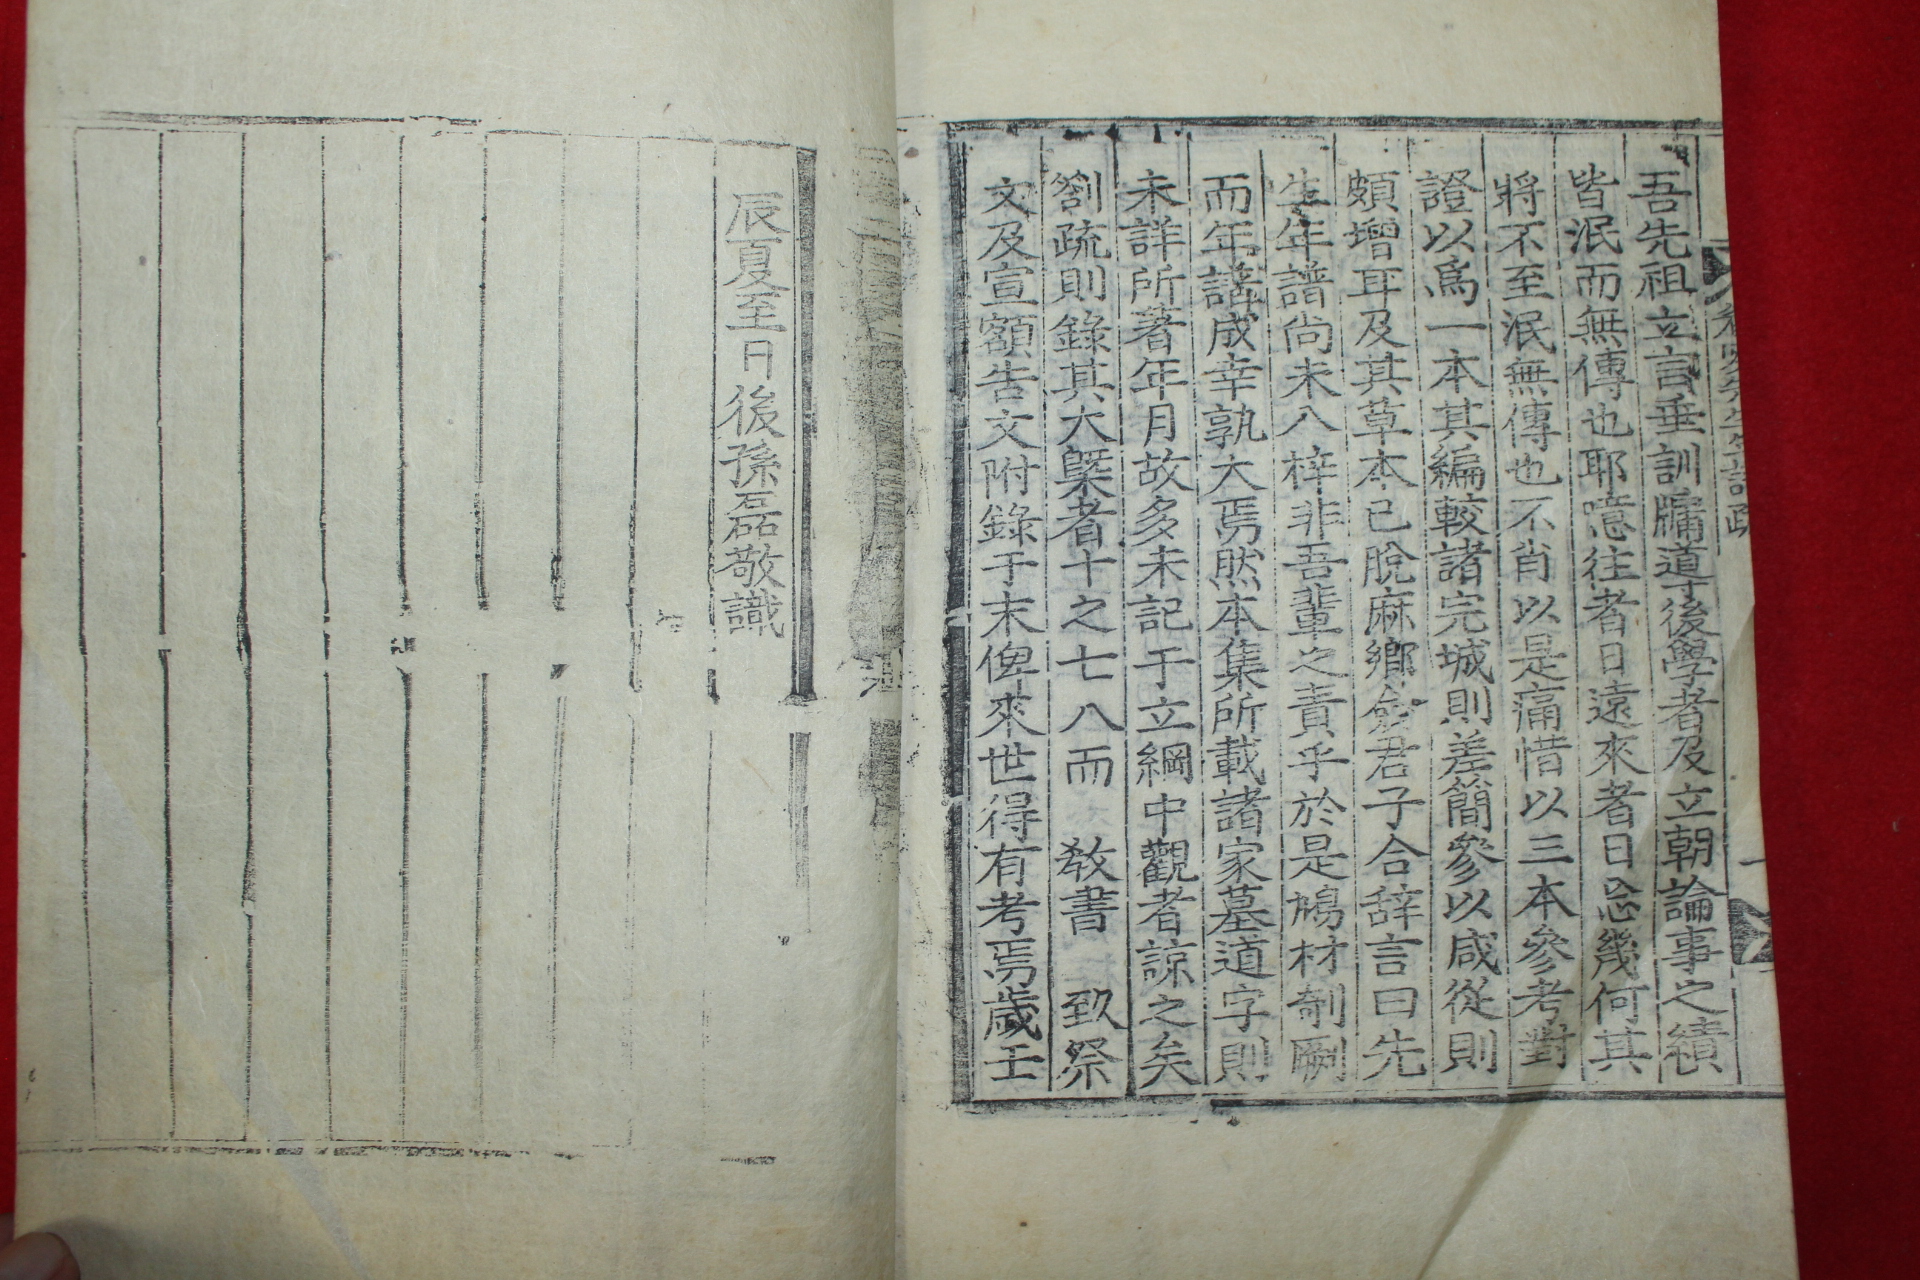 吾先祖立言垂訓牖道後學者及立朝論事之績
皆泯而無傳也耶噫往者日遠來者日忘幾何其
將不至泯無傳也不肖以是痛惜以三本參考對
證以爲一本其編較諸完城則差簡參以咸從則
頗增耳及其草本已脫麻鄕僉君子合辞言曰先
生年譜尙未入梓非吾輩之責乎於是鳩材剞劂
而年譜成幸孰大焉然本集所載諸家墓道字則
未詳所著年月故多未記于立綱中觀者諒之矣
劄疏則錄其大槩者十之七八而 敎書 致祭
文及宣額告文附錄于末俾來世得有考焉歲壬
辰夏至日後孫磊敬識